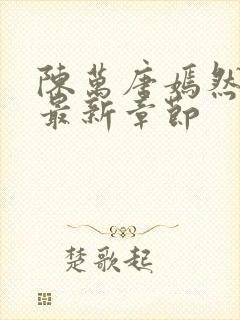 陳萬唐嫣然
最新章節
楚歌起